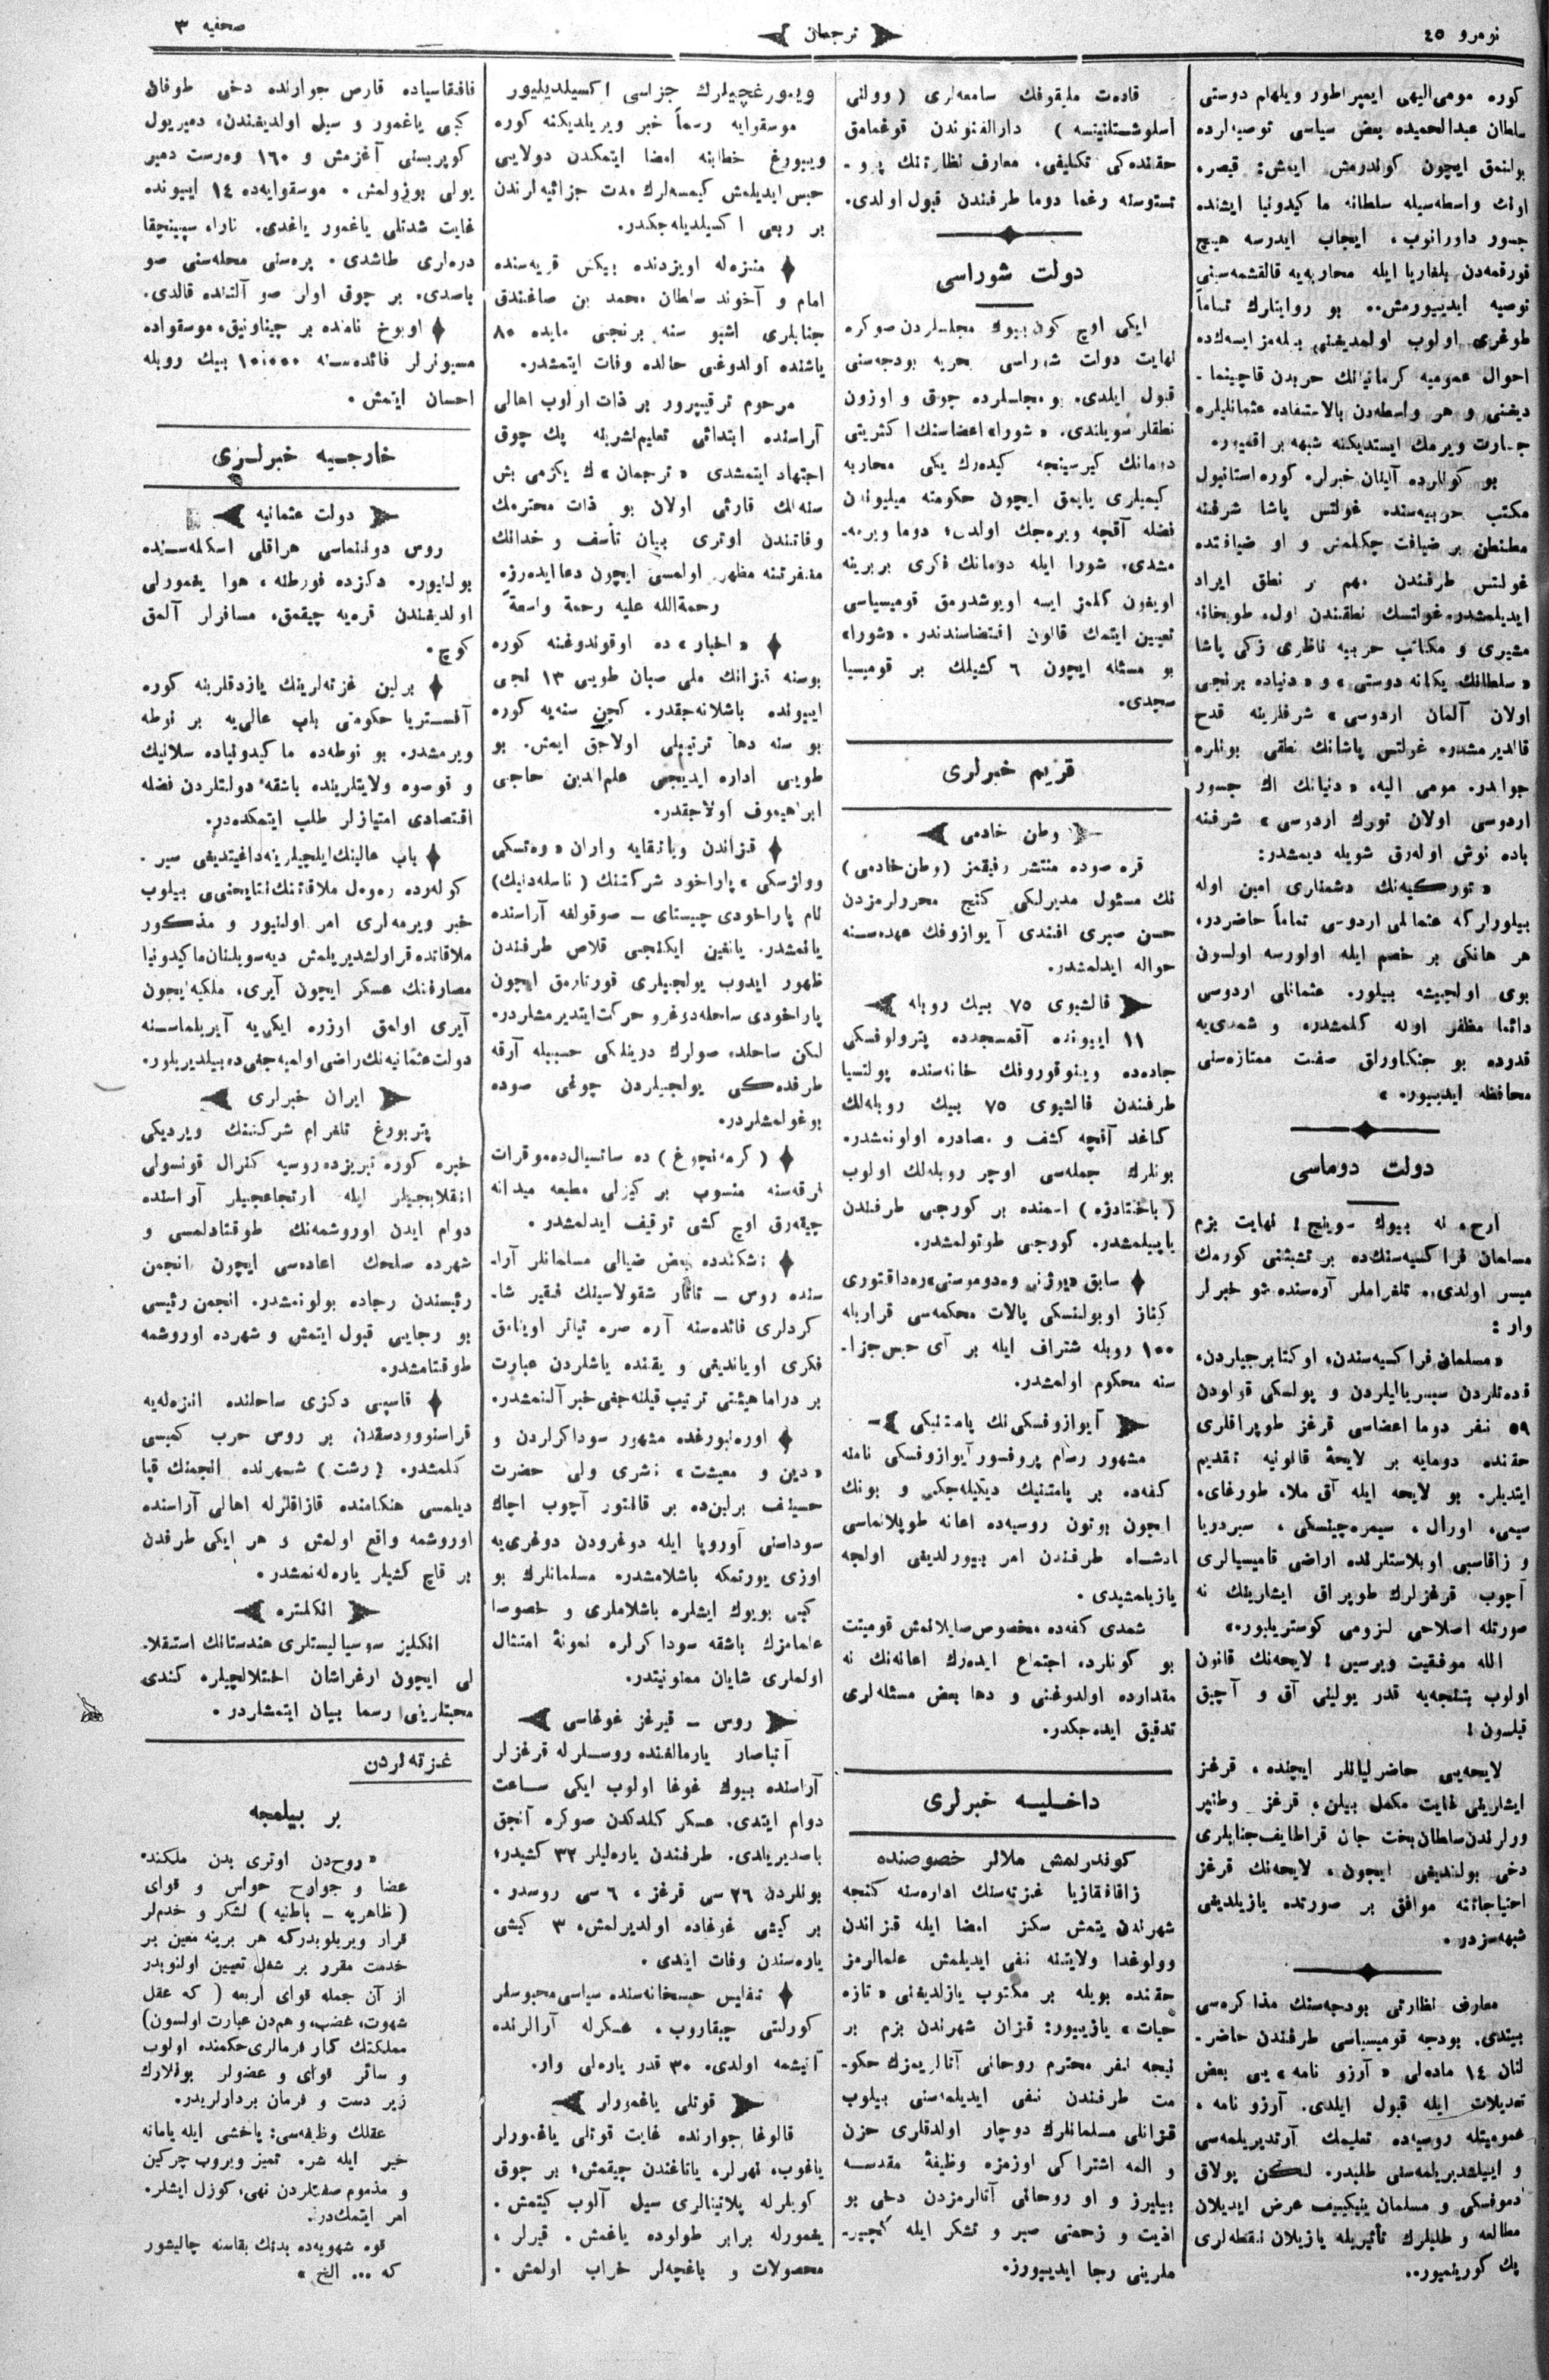 نومرو ٤٥
ترجمان
صحفیه ٣
كوره مومی‌الیهی ایمپراطور ویلهلم دوستی
سلطان عبدالحمیده بعض سیاسی توصیه‌لرده
بولنمق ایچون كوندرمش ایمش: قیصره
اونك واسطه‌سیله سلطانه ماكیدونیا ایشنده
جسور داورانوب، ایجاب ایدرسه هیچ
قورقمه‌دن بلغاریا ایله محاربه‌یه قالقشمه‌سنی
توصیه ایدییورمش.. بو روایتلرك تماماً
طوغری اولوب اولمدیغنی بیله‌مز ایسه‌كده
احوال عمومیه كرمانیانك حربدن قاچینما-
دیغنی و هر واسطه‌دن بالاستفاده عثمانلیلره
جسارت ویرمك ایستدیكنه شبهه براقمیور.
بو كونلرده آلینان خبرلره كوره استانبول
مكتب حربیه‌سنده غولتس پاشا شرفنه
مطنطن بر ضیافت چكلمش و او ضیافتده
غولتس طرفندن مهم بر نطق ایراد
ایدیلمشدر. غولتسك نطقندن اول، طوپخانه
مشیری و مكاتب حربیه ناظری زكی پاشا
«سلطانك یكانه دوستی» و «دنیاده برنجی
اولان آلمان اردوسی» شرفلرینه قدح
قالدیرمشدر. غولتس پاشانك نطقی بونلره
جوابدر. مومی الیه، «دنیانك اك جسور
اردوسی اولان تورك اردوسی» شرفنه
باده نوش اوله‌رق شویله دیمشدر:
«توركیه‌نك دشمنلری امین اوله
بیلورلركه عثمانلی اردوسی تماماً حاضردر،
هر هانكی بر خصم ایله اولورسه اولسون
بوی اولچیشه بیلور. عثمانلی اردوسی
دائما مظفر اوله كلمشدر. و شمدی‌یه
قدرده بو جنكاورلق صفت ممتازه‌سنی
محافظه ایدییور.»
دولت دوماسی
نه بیوك سوینج! نهایت بزم
مسلمان فراكسیه‌سنك‌ده بر تشبثنی كورمك
میسر اولدی.. تلغراملر آره‌سنده شو خبرلر
وار:
«مسلمان فراكسیه‌سندن، اوكتابرجیلردن،
قده‌تلردن سیبریالیلردن و پولسكی قولودن
٥٩ نفر دوما اعضاسی قرغز طوپراقلری
حقنده دومایه بر لایحهٔ قانونیه تقدیم
ایتدیلر. بو لایحه ایله آق ملا، طورغای،
سیمی، اورال، سیمره‌چینسكی، سیردریا
و زاقاسپی اوبلاستلرنده اراضی قامیسیالری
آچوب قرغزلرك طوپراق ایشلرینك نه
صورتله اصلاحی لزومی كوستریلیور.»
الله موفقیت ویرسین! لایحه‌نك قانون
اولوب یتشجه‌یه قدر یولینی آق و آچیق
قیلسون!
لایحه‌یی حاضرلیانلر ایچنده، قرغز
ایشلرینی غایت مكمل بیلن، قرغز وطنپر
ورلرندن سلطان بخت جان قراطایف جنابلری
دخی بولندیغی ایچون، لایحه‌نك قرغز
احتیاجاتنه موافق بر صورتده یازیلدیغی
شبهه‌سزدر.
معارف نظارتی بودجه‌سنك مذاكره‌سی
بیتدی. بودجه قومیسیاسی طرفندن حاضر-
لنان ١٤ ماده‌لی «آرزو نامه» یی بعض
تعدیلات ایله قبول ایلدی. آرزو نامه،
عمومیتله روسیه‌ده تعلیمك آرتدیریلمه‌سی
و اییلشدیریلمه‌سنی طلبدر. لكن پولاق
دموفسكی و مسلمان ینیكییف عرض ایدیلان
مطالعه و طلبلرك تأثیریله یازیلان نقطه‌لری
پك كورینمیور..
قاده‌ت ملیقوفك سامعه‌لری (وولنی
اسلوشتلنیتسه) دارالفنوندن قوغمامق
حقنده‌كی تكلیفی، معارف نظارتنك پرو-
تستوسنه رغما دوما طرفندن قبول اولدی.
دولت شوراسی
ایكی اوچ كون بیوك مجلسلردن صوكره
نهایت دولت شوراسی بحریه بودجه‌سنی
قبول ایلدی. بو مجلسلرده چوق و اوزون
نطقلر سویلندی. «شورا» اعضاسنك اكثریتی
دومانك كیرسینجه كیده‌رك یكی محاربه
كیمیلری یاپمق ایچون حكومته میلیوندن
فضله آقچه ویره‌جك اولدی؛ دوما ویرمه-
مشدی. شورا ایله دومانك فكری بربرینه
اویغون كلمز ایسه اویوشدرمق قومیسیاسی
تعیین ایتمك قانون اقتضاسندندر. «شورا»
بو مسئله ایچون ٦ كشیلك بر قومیسیا
سچدی.
قریم خبرلری
وطن خادمی
قره صوده منتشر رفیقمز (وطن خادمی)
نك مسئول مدیرلكی كنج محررلرمزدن
حسن صبری افندی آیوازوفك عهده‌سنه
حواله ایدلمشدر.
فالشیوی ٧٥ بیك روبله
١١ اییونده آقمسجدده پترولوفسكی
جاده‌ده وینوقوروفك خانه‌سنده پولتسیا
طرفندن فالشیوی ٧٥ بیك روبله‌لك
كاغد آقچه كشف و مصادره اولونمشدر.
بونلرك جمله‌سی اوچر روبله‌لك اولوب
(باختتادزه) اسمنده بر كورجی طرفندن
یاپیلمشدر. كورجی طوتولمشدر.
سابق «یوژنی وه‌دوموستی» ره‌داقتوری
كناز اوبولنسكی پالات محكمه‌سی قراریله
١٠٠ روبله شتراف ایله بر آی حبس جزا-
سنه محكوم اولمشدر.
آیوازوفسكی‌نك پامتنیكی
مشهور رسام پروفسور آیوازوفسكی نامنه
كفه‌ده بر پامتنیك دیكیله‌جكی و بونك
ایچون بوتون روسیه‌ده اعانه طوپلانماسی
پادشاه طرفندن امر بییورلدیغی اولجه
یازیلمشیدی.
شمدی كفه‌ده مخصوص صایلانمش قومیتت
بو كونلرده اجتماع ایده‌رك اعانه‌نك نه
مقدارده اولدوغنی و دها بعض مسئله‌لری
تدقیق ایده‌جكدر.
داخلیه خبرلری
كوندرلمش ملالر خصوصنده
زاقافقازیا غزته‌سنك اداره‌سنه كنجه
شهرندن یتمش سكز امضا ایله قزاندن
وولوغدا ولایتنه نفی ایدیلمش علمالرمز
حقنده بویله بر مكتوب یازلدیغنی «تازه
حیات» یازییور: قزان شهرندن بزم بر
نیجه نفر محترم روحانی آتالریمزك حكو-
مت طرفندن نفی ایدیلمه‌سنی بیلوب
قزانلی مسلمانلرك دوچار اولدقلری حزن
و المه اشتراكی اوزمزه وظیفهٔ مقدسه
بیلیرز و او روحانی آتالرمزدن دخی بو
اذیت و زحمتی صبر و تشكر ایله كچیر-
ملرینی رجا ایدییورز.
ویبورغچیلرك جزاسی اكسیلدیلیور
موسقوایه رسماً خبر ویریلدیكنه كوره
ویبورغ خطابنه امضا ایتمكدن دولایی
حبس ایدیلمش كیمسه‌لرك مدت جزائیه‌لرندن
بر ربعی اكسیلدیله‌جكدر.
منزه‌له اویزدنده بیكش قریه‌سنده
امام و آخوند سلطان محمد بن صاغندق
جنابلری اشبو سنه برنجی مایده ٨٠
یاشنده اولدوغی حالده وفات ایتمشدر.
مرحوم ترقیپرور بر ذات اولوب اهالی
آراسنده ابتدائی تعلیم نشرینه پك چوق
اجتهاد ایتمشدی «ترجمان» ك یكرمی بش
سنه‌لك قارئی اولان بو ذات محترمك
وفاتندن اوتری بیان تأسف و خدانك
مغفرتنه مظهر اولمسی ایچون دعا ایده‌رز.
رحمة‌الله علیه رحمة واسعة
«الخبار» ده اوقوندوغنه كوره
بوسنه قزانك ملی صبان طویی ١٣ نجی
اییونده باشلانه‌جقدر. كچن سنه‌یه كوره
بو سنه دها ترتیبلی اولاجق ایمش. بو
طویی اداره ایدیجی علم‌الدین حاجی
ابراهیموف اولاجقدر.
قزاندن ویاتقایه واران «وه‌تسكی
وولژسكی» پاراخود شركتنك (ناسله‌دنیك)
نام پاراخودی چیستای – صوقولقه آراسنده
یانمشدر. یانغین ایكنجی قلاص طرفندن
ظهور ایدوب یولجیلری قورتارمق ایچون
پاراخودی ساحله دوغرو حركت ایتدیرمشلردر.
لكن ساحلده صولرك درینلكی حسبیله آرقه
طرفده‌كی یولجیلردن چوغی صوده
بوغولمشلردر.
(كره‌منچوغ) ده ساتسیال‌ده‌موقرات
فرقه‌سنه منسوب بر كیزلی مطبعه میدانه
چیقه‌رق اوچ كشی توقیف ایدلمشدر.
تشكندده بعض ضیالی مسلمانلر آرا-
سنده روس – تاتار شقولاسینك فقیر شا-
كردلری فائده‌سنه آره صره تیاتر اوینامق
فكری اویاندیغی و یقنده یاشلردن عبارت
بر دراما هیئتی ترتیب قیلنه‌جغی خبر آلنمشدر.
اوره‌نبورغده مشهور سوداكرلردن و
«دین و معیشت» نشری ولی حضرت
حسینف برلین‌ده بر قانتور آچوب اچك
سوداسنی آوروپا ایله دوغرودن دوغری‌یه
اوزی یورتمكه باشلامشدر. مسلمانلرك بو
كبی بویوك ایشلره باشلاملری و خصوصا
علمامزك باشقه سوداكرلره نمونهٔ امتثال
اولملری شایان ممنونیتدر.
روس – قیرغز غوغاسی
آتباصار یارمالغنده روسلرله قرغزلر
آراسنده بیوك غوغا اولوب ایكی ساعت
دوام ایتدی. عسكر كلدكدن صوكره آنجق
باصدیریلدی. طرفندن یاره‌لیلر ٣٢ كشیدر؛
بونلردن ٢٦ سی قرغز، ٦ سی روسدر.
بر كیشی غوغاده اولدیرلمش، ٣ كیشی
یاره‌سندن وفات ایتدی.
تفلیس حبسخانه‌سنده سیاسی محبوسلر
كورلتی چیقاروب، عسكرله آرالرنده
آتیشمه اولدی. ٣٠ قدر یاره‌لی وار.
قوتلی یاغمورلر
قالوغا جوارنده غایت قوتلی یاغمورلر
یاغوب، نهرلره یاتاغندن چیقمش؛ بر چوق
كوپلرله پلاتینالری سیل آلوب كیتمش.
یغمورله برابر طولوده یاغمش. قیرلر،
محصولات و باغچه‌لر خراب اولمش.
قافقاسیاده قارص جوارنده دخی طوفان
كبی یاغمور و سیل اولدیغندن، دمیریول
كوپریسنی آغزمش و ١٦٠ وه‌رست دمیر
یولی بوزولمش. موسقوایه‌ده ١٤ اییونده
غایت شدتلی یاغمور یاغدی. نارا، سپینچقا
دره‌لری طاشدی. بره‌سنی محله‌سنی صو
باصدی. بر چوق اولر صو آلتنده قالدی.
اوبوخ نامنده بر چیناونیق، موسقواده
مسیونرلر فائده‌سنه ١٠٠٠٠٠ بیك روبله
احسان ایتمش.
خارجیه خبرلری
دولت عثمانیه
روس دوننماسی هراقلی اسكله‌سنده
بولنیور. دكزده فورطنه، هوا یغمورلی
اولدیغندن قره‌یه چیقمق، مسافرلر آلمق
كوچ.
برلین غزته‌لرینك یازدقلرینه كوره
آفستریا حكومتی باب عالی‌یه بر نوطه
ویرمشدر. بو نوطه‌ده ماكیدونیاده سلانیك
و قوصوه ولایتلرینده باشقه دولتلردن فضله
اقتصادی امتیازلر طلب ایتمكده‌در.
باب عالینك ایلچیلرینه داغیتدیغی سیر-
كولرده ره‌وه‌ل ملاقاتنك نتایجنی بیلوب
خبر ویرمه‌لری امر اولنیور و مذكور
ملاقاتده قراولشدیریلمش دیه سویلنان ماكیدونیا
مصارفنك عسكر ایچون آیری، ملكیه ایچون
آیری اولمق اوزره ایكی‌یه آیریلماسنه
دولت عثمانیه‌نك راضی اولمیه‌جغی‌ده بیلدیریلور.
ایران خبرلری
پتربورغ تلغرام شركتنك ویردیكی
خبره كوره تبریزده روسیه كنرال قونسولی
انقلابجیلر ایله ارتجاعجیلر آراسنده
دوام ایدن اوروشمه‌نك طوقتادلمسی و
شهرده صلحك اعاده‌سی ایچون انجمن
رئیسندن رجاده بولونمشدر. انجمن رئیسی
بو رجایی قبول ایتمش و شهرده اوروشمه
طوقتامشدر.
قاسپی دكزی ساحلنده انزه‌لی‌یه
قراسنووودسقدن بر روس حرب كمیسی
كلمشدر. (رشت) شهرنده انجمنك قپا
دیلمسی هنكامنده قازاقلرله اهالی آراسنده
اوروشمه واقع اولمش و هر ایكی طرفدن
بر قاچ كشیلر یاره‌له‌نمشدر.
انكلتره
انكلیز سوسیالیستلری هندستانك استقلا-
لی ایچون اوغراشان اختلالجیلره كندی
محبتلرینی رسما بیان ایتمشلردر.
غزته‌لردن
بر بیلمجه
«روح‌دن اوتری بدن ملكنده
عضا و جوارح حواس و قوای
(ظاهریه – باطنیه) لشكر و خدم‌لر
قرار ویریلوبدركه هر برینه معین بر
خدمت مقرر بر شغل تعیین اولنوبدر
از آن جمله قوای اربعه (كه عقل
شهوت، غضب، و هم‌دن عبارت اولسون)
مملكتك كارفرمالری حكمنده اولوب
و سائر قوای و عضولر بونلارك
زیر دست و فرمان بردارلریدر.
عقلك وظیفه‌سی: یاخشی ایله یامانه
خیر ایله شر. تمیز ویروب چركین
و مذموم صفتلردن نهی، كوزل ایشلر.
امر ایتمك‌در.
قوه شهویه‌ده بدنك بقاسنه چالیشور
كه ... الخ»